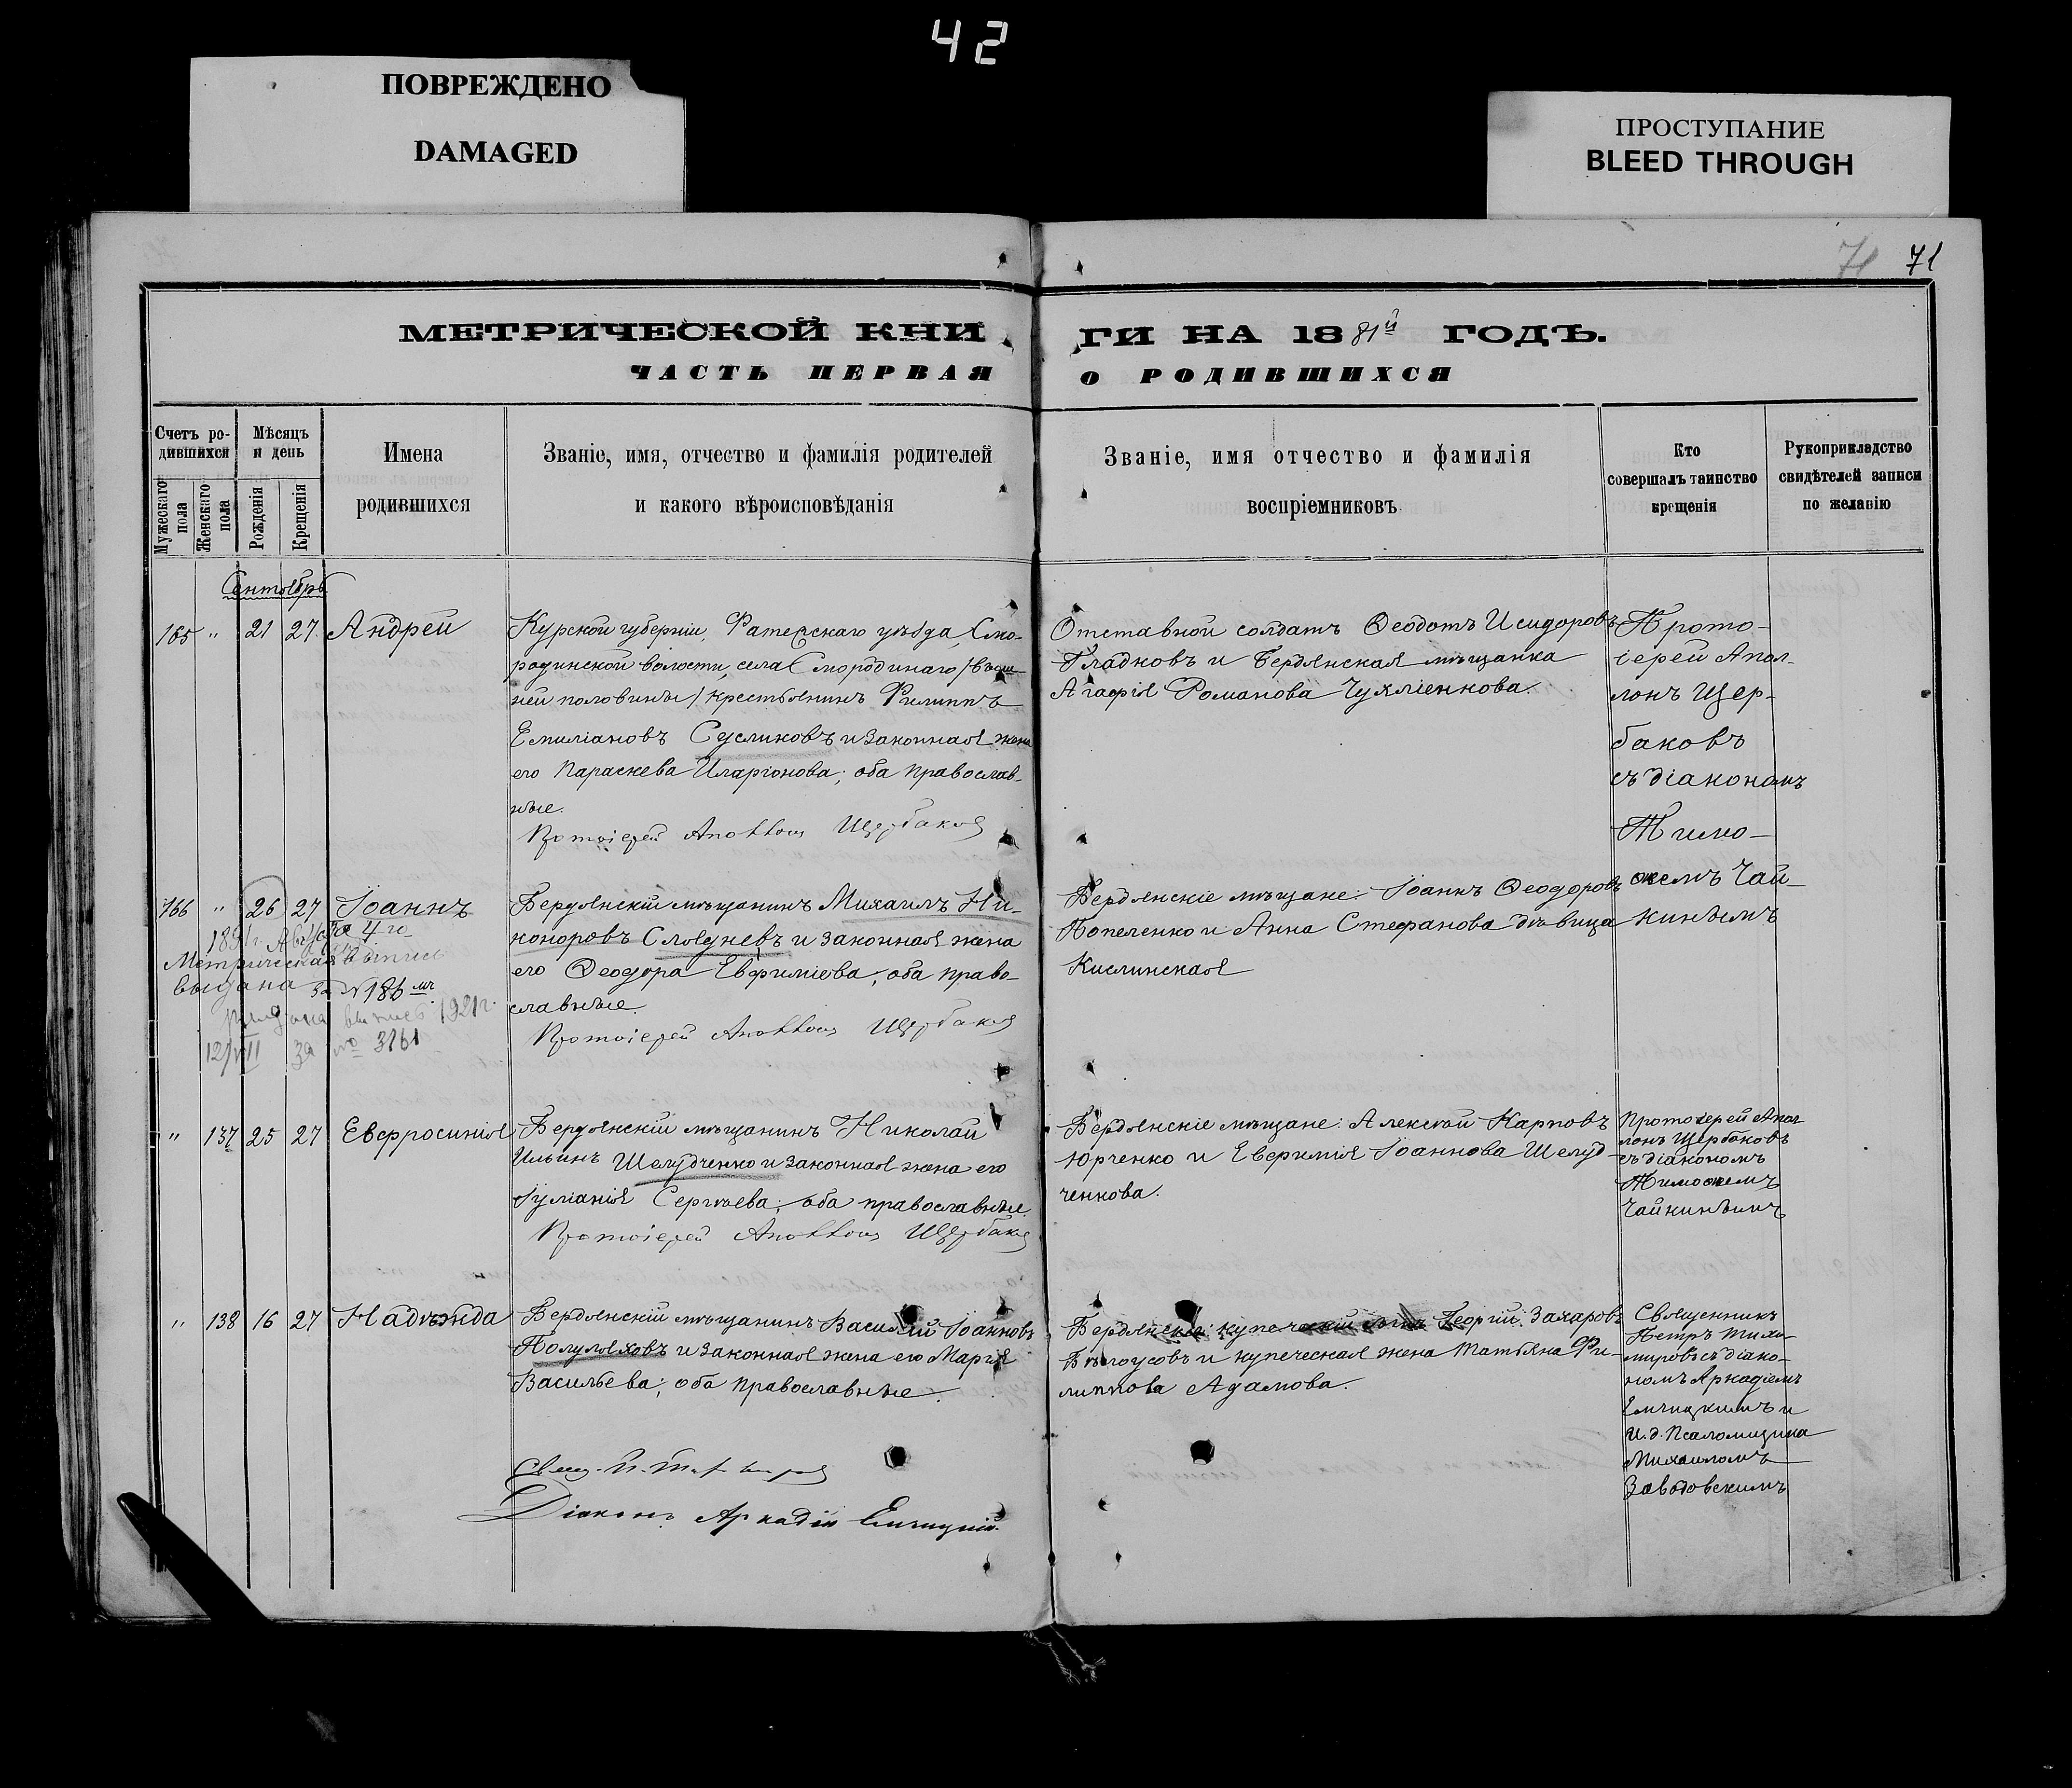 42
ПОВРЕЖДЕНО
DAMAGED
ПРОСТУПАНИЕ
BLEED THROUGH
71 71
МЕТРИЧЕСКОЙ КНИ
ГИ НА 1881й ГОДЪ.
ЧАСТЬ ПЕРВАЯ
О РОДИВШИХСЯ
Счетъ ро-
дившихся
Мужескаго
пола
Женскаго
пола
Мѣсяцъ
и день
Рожденія
Крещенія
Имена
родившихся
Званіе, имя, отчество и фамилія родителей
и какого вѣроисповѣданія
Званіе, имя отчество и фамилія
воспріемниковъ
Кто
совершалъ таинство
крещенія
Рукоприкладство
свидѣтелей записи
по желанію
Сентябрь
165 " 21 27. Андрей
Курской губерніи, Фатежскаго уѣзда, Смо-
родинской волости, села Смородинаго /
ней половины/ крестьянинъ Филиппъ
Емиліановъ Сусликовъ и законная жена
его Параскева Иларіонова; оба православ-
ные.
Протоіерей Аполлонъ Щербаковъ
Отставной солдатъ Ѳеодотъ Исидоровъ
Гладковъ и Бердянская мѣщанка
Агафія Романова
Прото-
іерей Апол-
лонъ Щер-
баковъ
съ діакономъ
Тимо-
ѳеемъ Чай-
кинымъ
166 " 26 27 Іоаннъ
Августа 4го
Метрическая выпись
выдана за №186мъ
выдана выпись 1921г.
12/VII за № 3161
Бердянскій мѣщанинъ Михаилъ Ни-
коноровъ Слѣдневъ и законная жена
его Ѳеодора Евфиміева; оба право-
славные.
Протоіерей Аполлонъ Щербаковъ
Бердянскіе мѣщане: Іоаннъ Ѳеодоровъ
Попеленко и Анна Стефанова дѣвица
Кислинская
" 137 25 27 Евфросинія
Бердянскій мѣщанинъ Николай
Ильинъ Шелудченко и законная жена его
Іуліанія Сергѣева; оба православные.
Протоіерей Аполлонъ Щербаковъ
Бердянскіе мѣщане: Алексѣй Карповъ
Юрченко и Евфимія Іоаннова Шелуд-
ченкова.
Протоіерей Апол
лонъ Щербаковъ
съ діакономъ
Тимоѳеемъ
Чайкинымъ
" 138 16 27 Надѣжда
Бердянскій мѣщанинъ Василій Іоанновъ
Полуляховъ и законная жена его Марія
Васильева; оба православные.
Діаконъ Аркадій Емчицкій.
Бердянскіе: купеческій сынъ Георгій Захаровъ
Бѣлоусовъ и купеческая жена Татьяна Фи-
липпова Адамова.
Священникъ
Петръ Тихо-
мировъ съ діако-
номъ Аркадіемъ
Емчицкимъ и
И.д. Псаломщика
Михаиломъ
Заводовскимъ